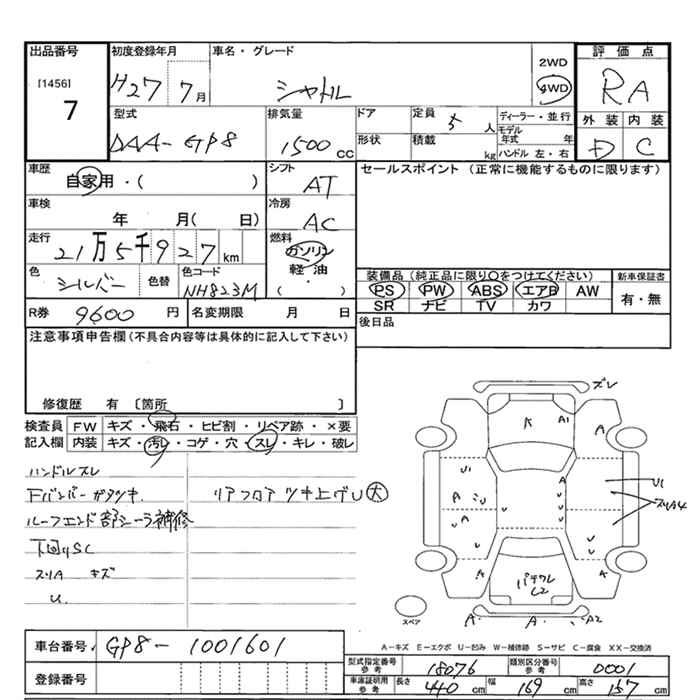 出品番号 [1456] 7
初度登録年月 H27 7月
車名・グレード シャトル
2WD 4WD
評価点 RA
型式 DAA-GP8
排気量 1500cc
ドア 形状
定員 5人
積載 kg
ディーラー・並行
モデル年式 年
ハンドル 左・右
外装 D 内装 C
車歴 自家用・( )
シフト AT
セールスポイント (正常に機能するものに限ります)
車検 年 月( 日)
冷房 AC
走行 21万5千927km
燃料 ガソリン 軽油・( )
色 シルバー 色替
色コード NH823M
装備品 (純正品に限り○をつけてください)
新車保証書 有・無
PS PW ABS エアB AW
SR ナビ TV カワ
R券 9600円 名変期限 月 日
後日品
注意事項申告欄(不具合内容等は具体的に記入して下さい)
修復歴 有 〔箇所 〕
検査員記入欄
FW キズ・飛石・ヒビ割・リペア跡・×要
内装 キズ・汚レ・コゲ・穴・スレ・キレ・破レ
ハンドルスレ
Fバンパーガタツキ
リアフロアツキ上ゲU大
ルーフエンド部シーラ補修
下回りSC
スリA キズ
U
ズレ
A A1 A
U1 A U1
A U スリA4
U A
A A
パチワレ L2
スペア A A A2
A-キズ E-エクボ U-凹み W-補修跡 S-サビ C-腐食 XX-交換済
車台番号 GP8-1001601
登録番号
型式指定番号参考 18076 類別区分番号参考 0001
車庫証明用参考 長さ 440cm 幅 169cm 高さ 157cm